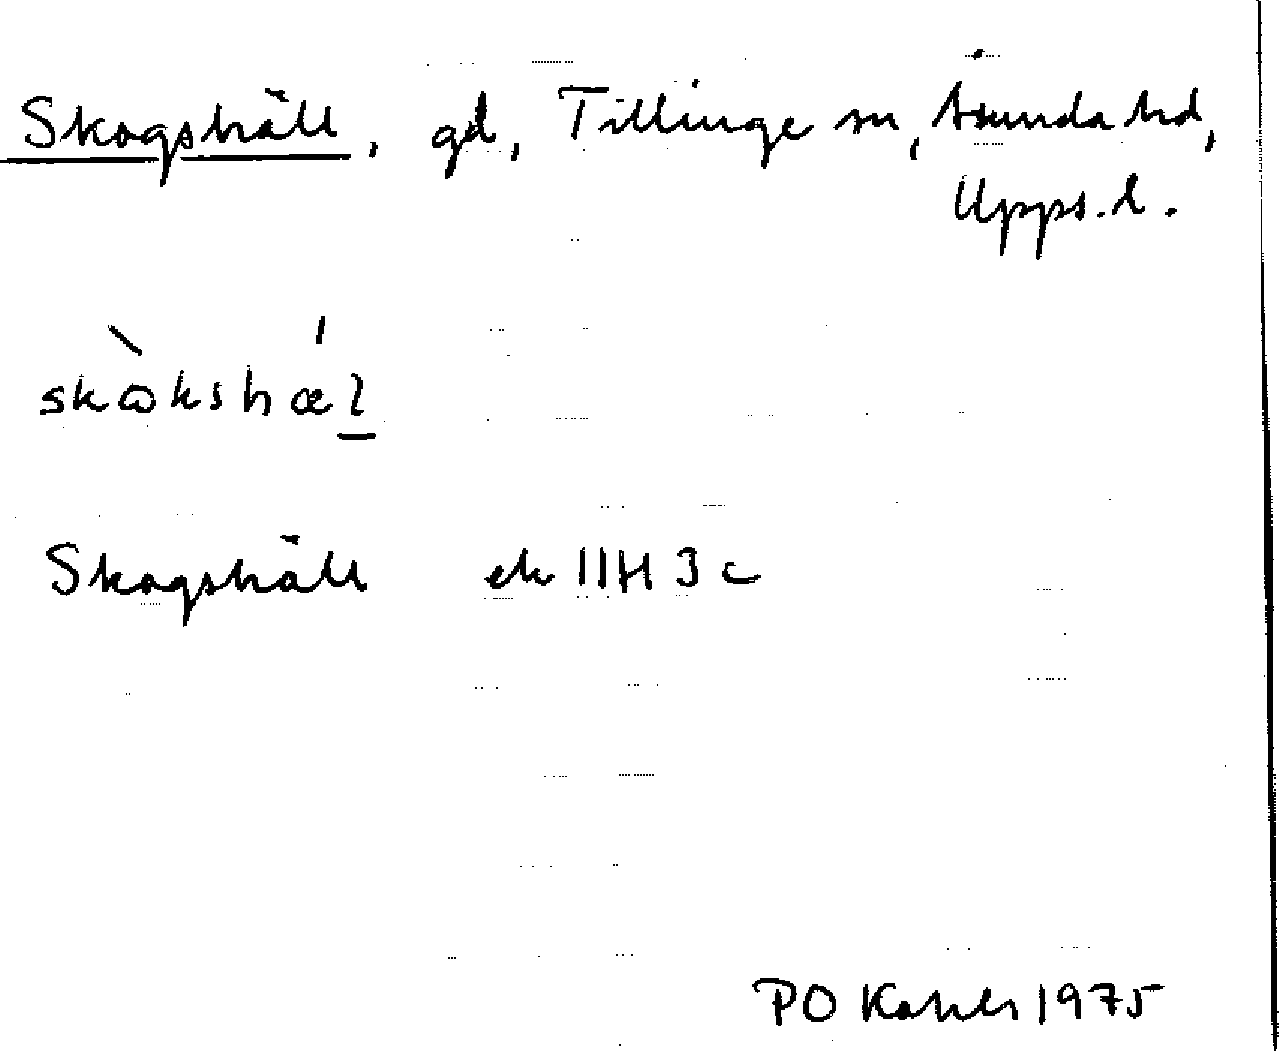 Skogshäll, gd, Tillinge sn, Åsunda hd,
Upps. l.
skòkshæ̍l
Skogshäll ek 11H 3c
PO Kahler 1975